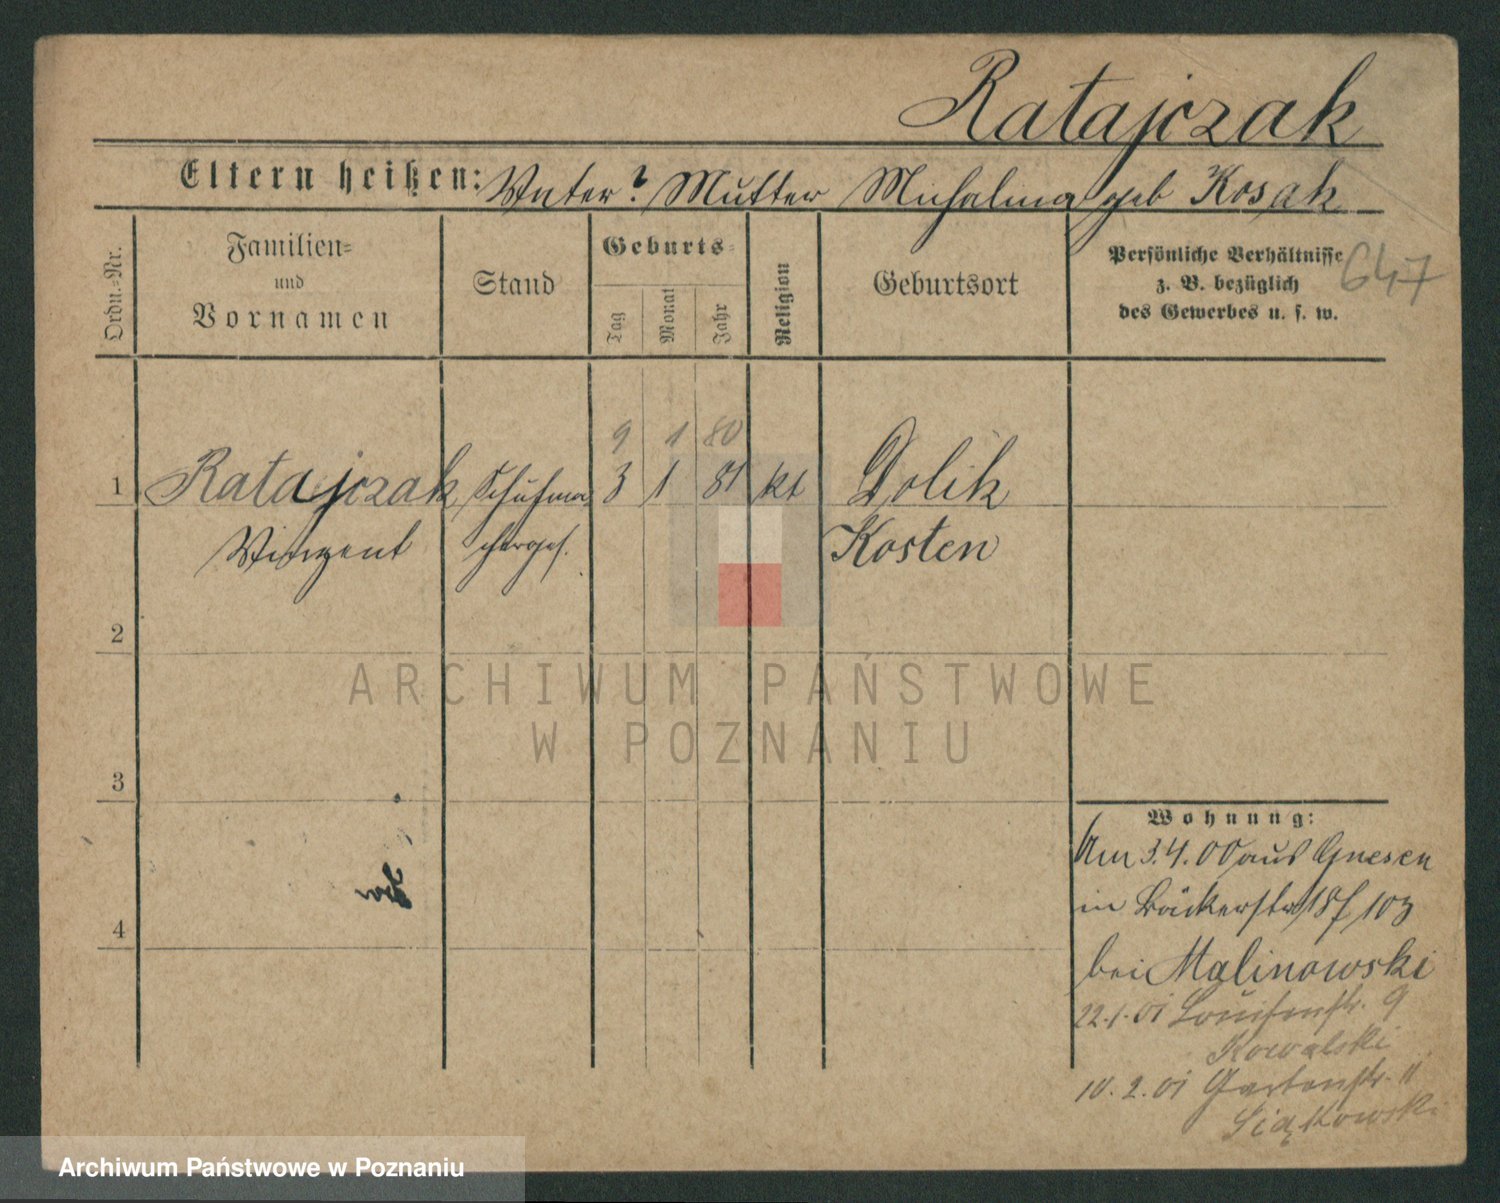 Ratajczak
Eltern heißen: Vater? Mutter Michalina geb Kosak
Ordn.-Nr.
Familien-
und
Vornamen
Stand
Geburts-
Tag
Monat
Jahr
Religion
Geburtsort
Persönliche Verhältnisse
z. B. bezüglich
des Gewerbes u. s. w.
647
9 1 80
1 Ratajczak Schuhma 3 1 81 kt Dolik
Winzent cherges. Kosten
2
ARCHIWUM PAŃSTWOWE
W POZNANIU
3
Wohnung:
Am 3.4.00 aus Gnesen
in Bäckerstr 18 f 103
4
bei Malinowski
22.1.01 Louisenstr. 9
Kowalski
10.2.01 Gartenstr. 11
Archiwum Państwowe w Poznaniu